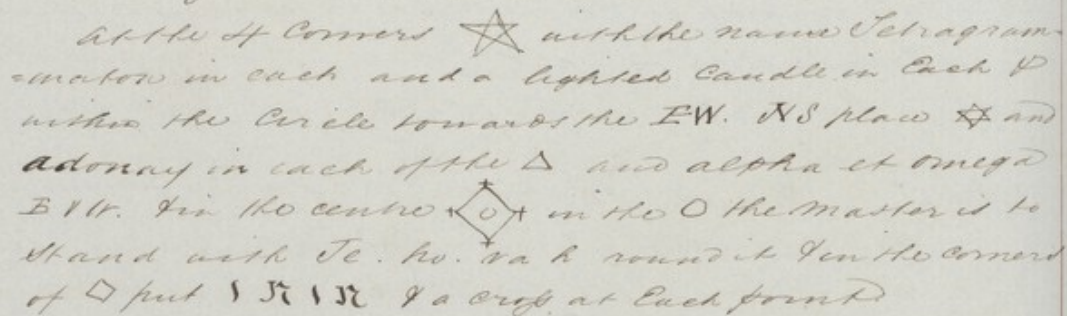 At the 4 Corners ☆ with the name Tetragram-
=maton in each and a lighted Candle in Each &
within the Circle towards the EW. NS place ✡ and
adonay in each of the △ and alpha et omega
E & W. & in the centre in the O the Master is to
Stand with Je. ho. va h round it & in the corners
of ◇ put & a cross at Each point